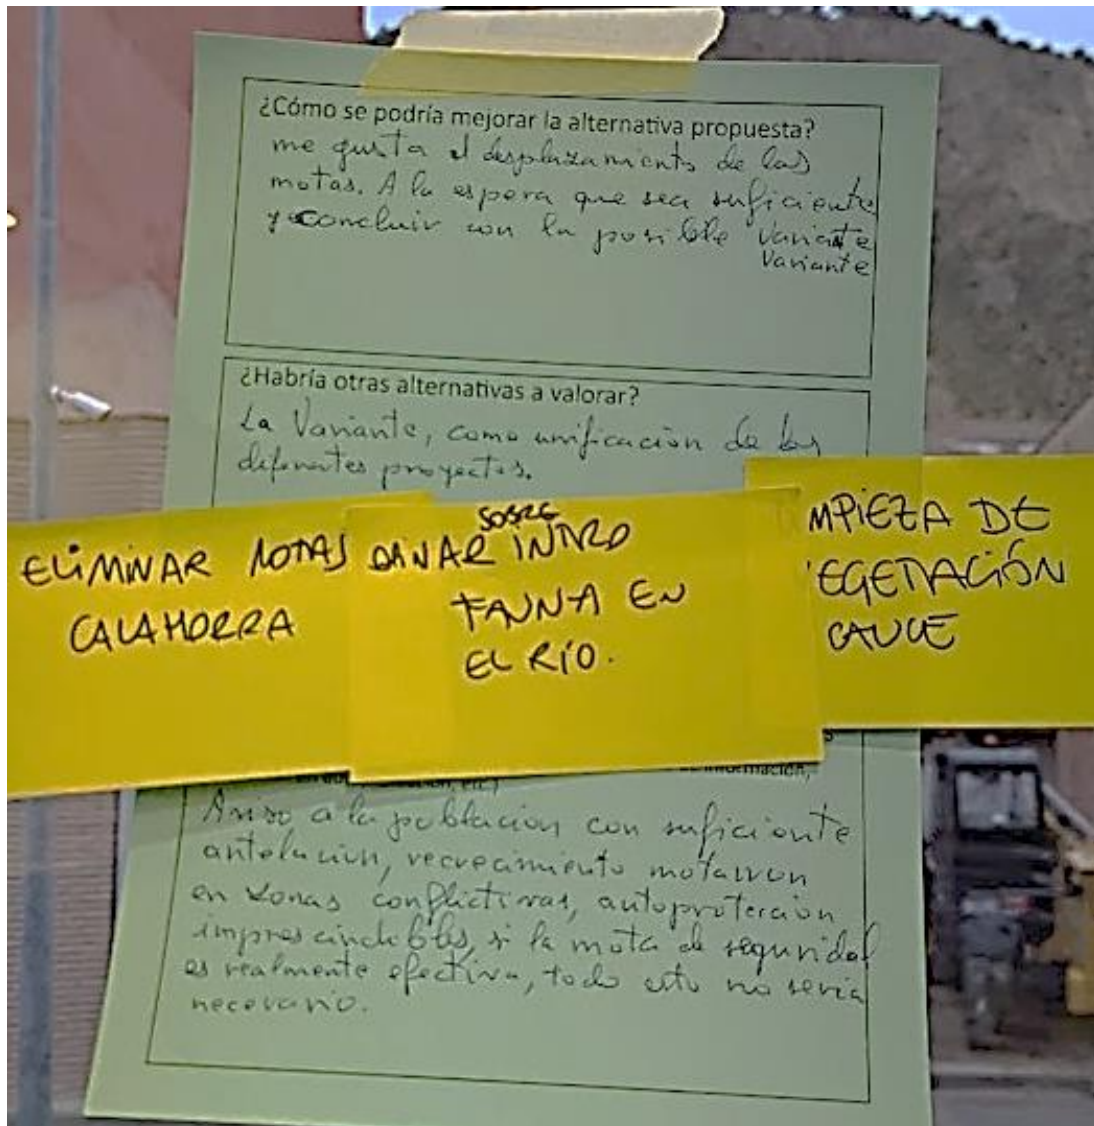 ¿Cómo se podría mejorar la alternativa propuesta?
me gusta el desplazamiento de las
motas. A la espera que sea suficiente
y concluir con la posible variante
Variante
¿Habría otras alternativas a valorar?
La Variante, como unificación de los
diferentes proyectos.
ELIMINAR MOTAS
CALAHORRA
SOBRE
INTRO
FAUNA EN
EL RÍO.
MPIEZA DE
EGETACIÓN
CAUCE
información,
Aviso a la población con suficiente
antelación, recrecimiento
en zonas conflictivas, autoprotección
imprescindibles, si la mota de seguridad
es realmente efectiva, todo esto no sería
necesario.